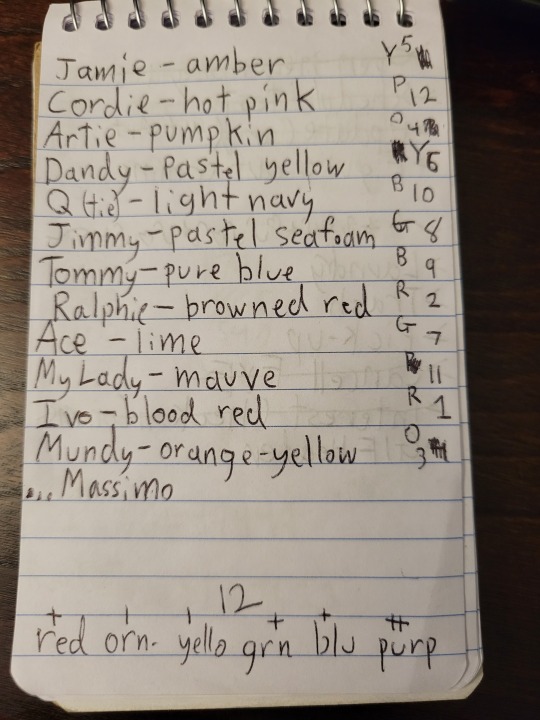 Jamie - amber Y 5
Cordie - hot pink P 12
Artie - pumpkin O 4
Dandy - Pastel yellow Y 6
Q (tie) - light navy B 10
Jimmy - pastel seafoam G 8
Tommy - pure blue B 9
Ralphie - browned red R 2
Ace - lime G 7
My Lady - mauve 11
Ivo - blood red R 1
Mundy - orange-yellow O 3
... Massimo
12
red orn. yello grn blu purp